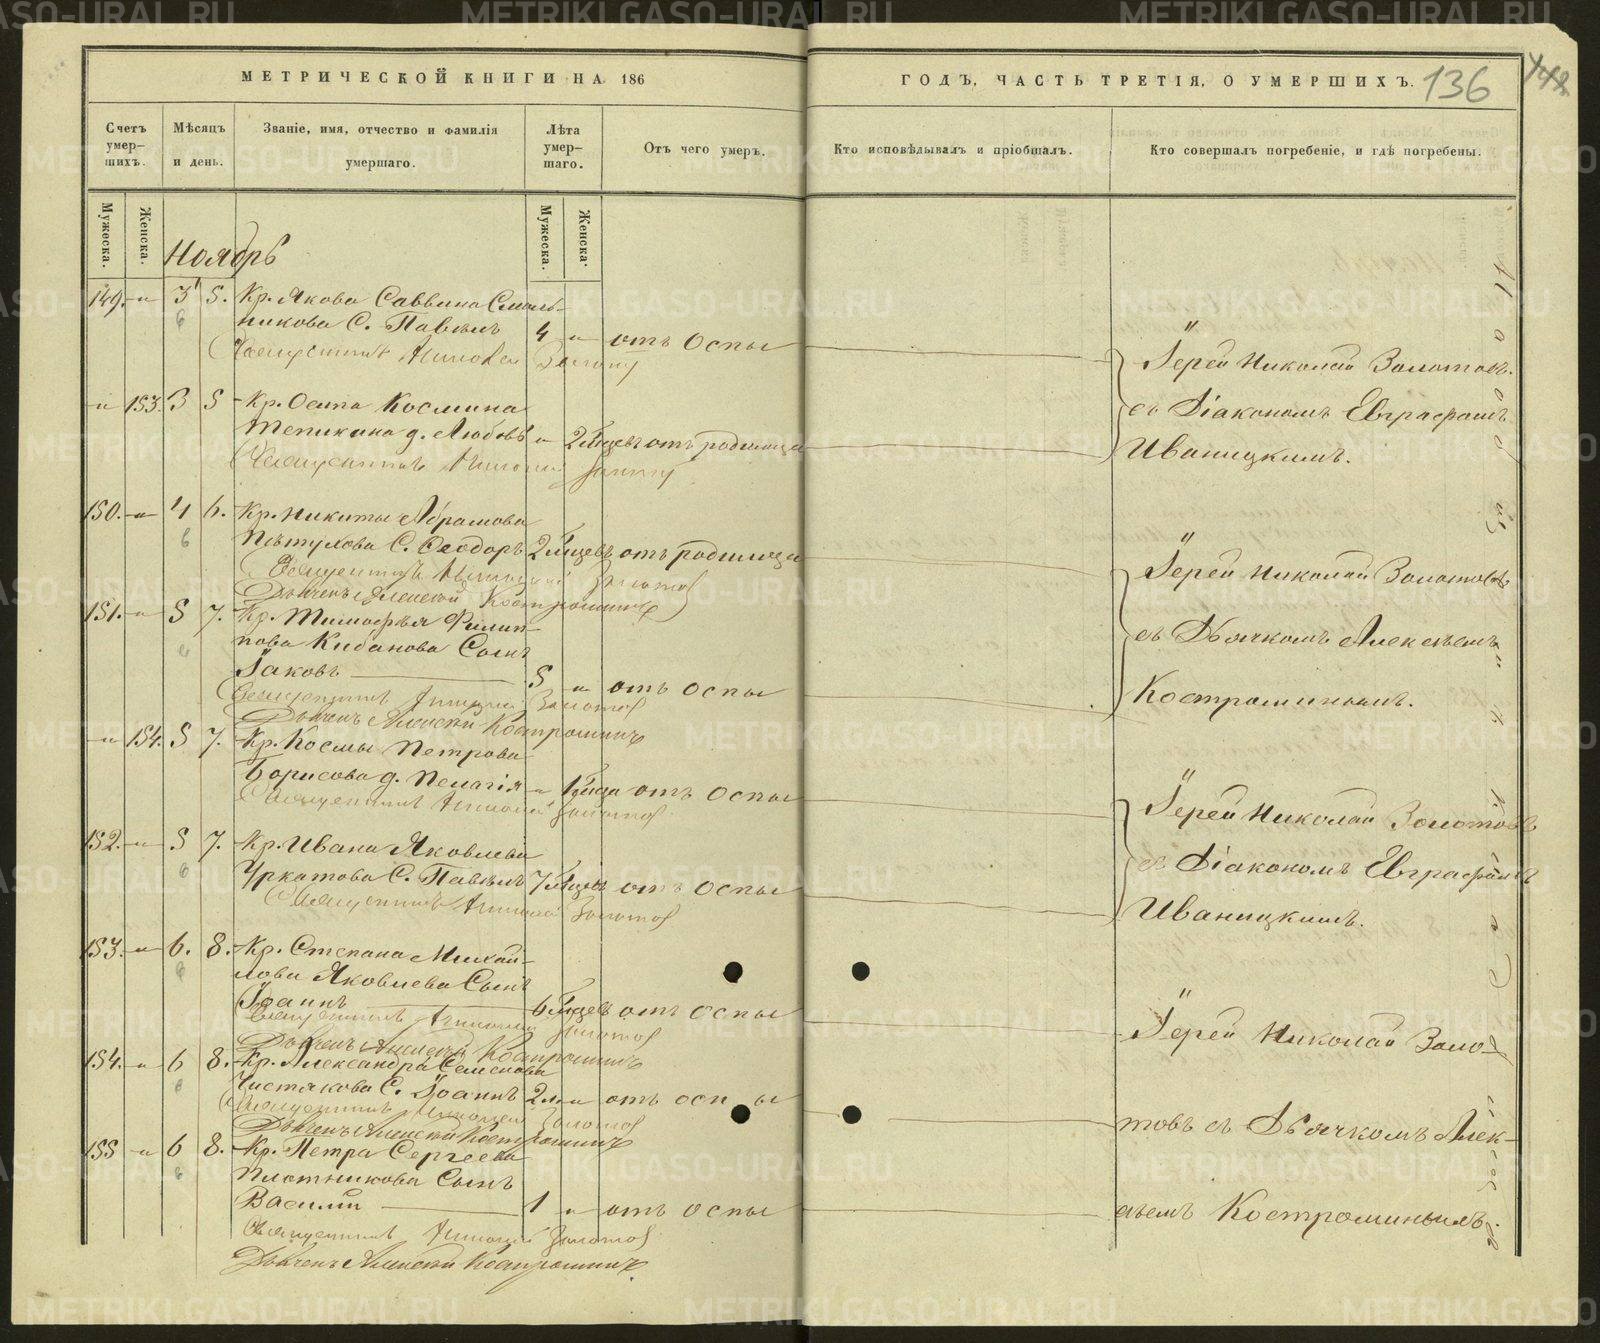 МЕТРИЧЕСКОЙ КНИГИ НА 186
ГОДЪ, ЧАСТЬ ТРЕТІЯ, О УМЕРШИХЪ.
136
Счетъ умер-шихъ.
Мѣсяцъ и день.
Званіе, имя, отчество и фамилія умершаго.
Лѣта умер-шаго.
Отъ чего умеръ.
Кто исповѣдывалъ и пріобщалъ.
Кто совершалъ погребеніе, и гдѣ погребены.
Мужеска.
Женска.
Мужеска.
Женска.
Ноябрь
149. " 3 5. Кр. Якова Саввина Смоль-
никова С. Павелъ 4 " отъ Оспы
Священникъ Николай
Іерей Николай Золотовъ
съ Діакономъ Евграфомъ
Иваницкимъ.
" 153. 3 5 Кр. Осипа Космина
Тепикина д. Любовь " 2 мѣсцевъ отъ родимца
Священникъ Николай
150. " 4 6. Кр. Никиты Абрамова
Пѣтухова С. Ѳеодоръ 2 мѣсцевъ отъ родимца
Священникъ Николай Золотов
Дьячекъ Алексей Костроминъ
Іерей Николай Золотовъ
съ Дьячкомъ Алексѣемъ
Костроминымъ.
151. " 5 7. Кр. Тимофѣя Филип-
пова Кибанова Сынъ
Іаковъ 5 " отъ оспы
Священникъ Николай Золотов
Дьячекъ Алексей Костроминъ
" 154. 5 7. Кр. Космы Петрова
Борисова д. Пелагія " 1 мѣсца отъ Оспы
Священникъ Николай Золотов
Іерей Николай Золотовъ
съ Діакономъ Евграфомъ
Иваницкимъ.
152. " 5 7. Кр. Ивана Яковлева
Уркатова С. Павелъ 7 мѣсцевъ отъ Оспы
Священникъ Николай Золотов
153. " 6. 8. Кр. Степана Михай-
лова Яковлева Сынъ
Іоаннъ 6 мѣсцевъ отъ Оспы
Священникъ Николай Золотов
Дьячекъ Алексей Костроминъ
Іерей Николай Золо-
товъ съ Дьячкомъ Алек-
сѣемъ Костроминымъ.
154. " 6 8. Кр. Александра Семенова
Чистякова С. Іоаннъ 2 " отъ оспы
Священникъ Николай Золотов
Дьячекъ Алексей Костроминъ
155 " 6 8. Кр. Петра Сергеева
Плотникова Сынъ
Василій 1 " отъ оспы
Священникъ Николай Золотов
Дьячекъ Алексей Костроминъ
METRIKI.GASO-URAL.RU